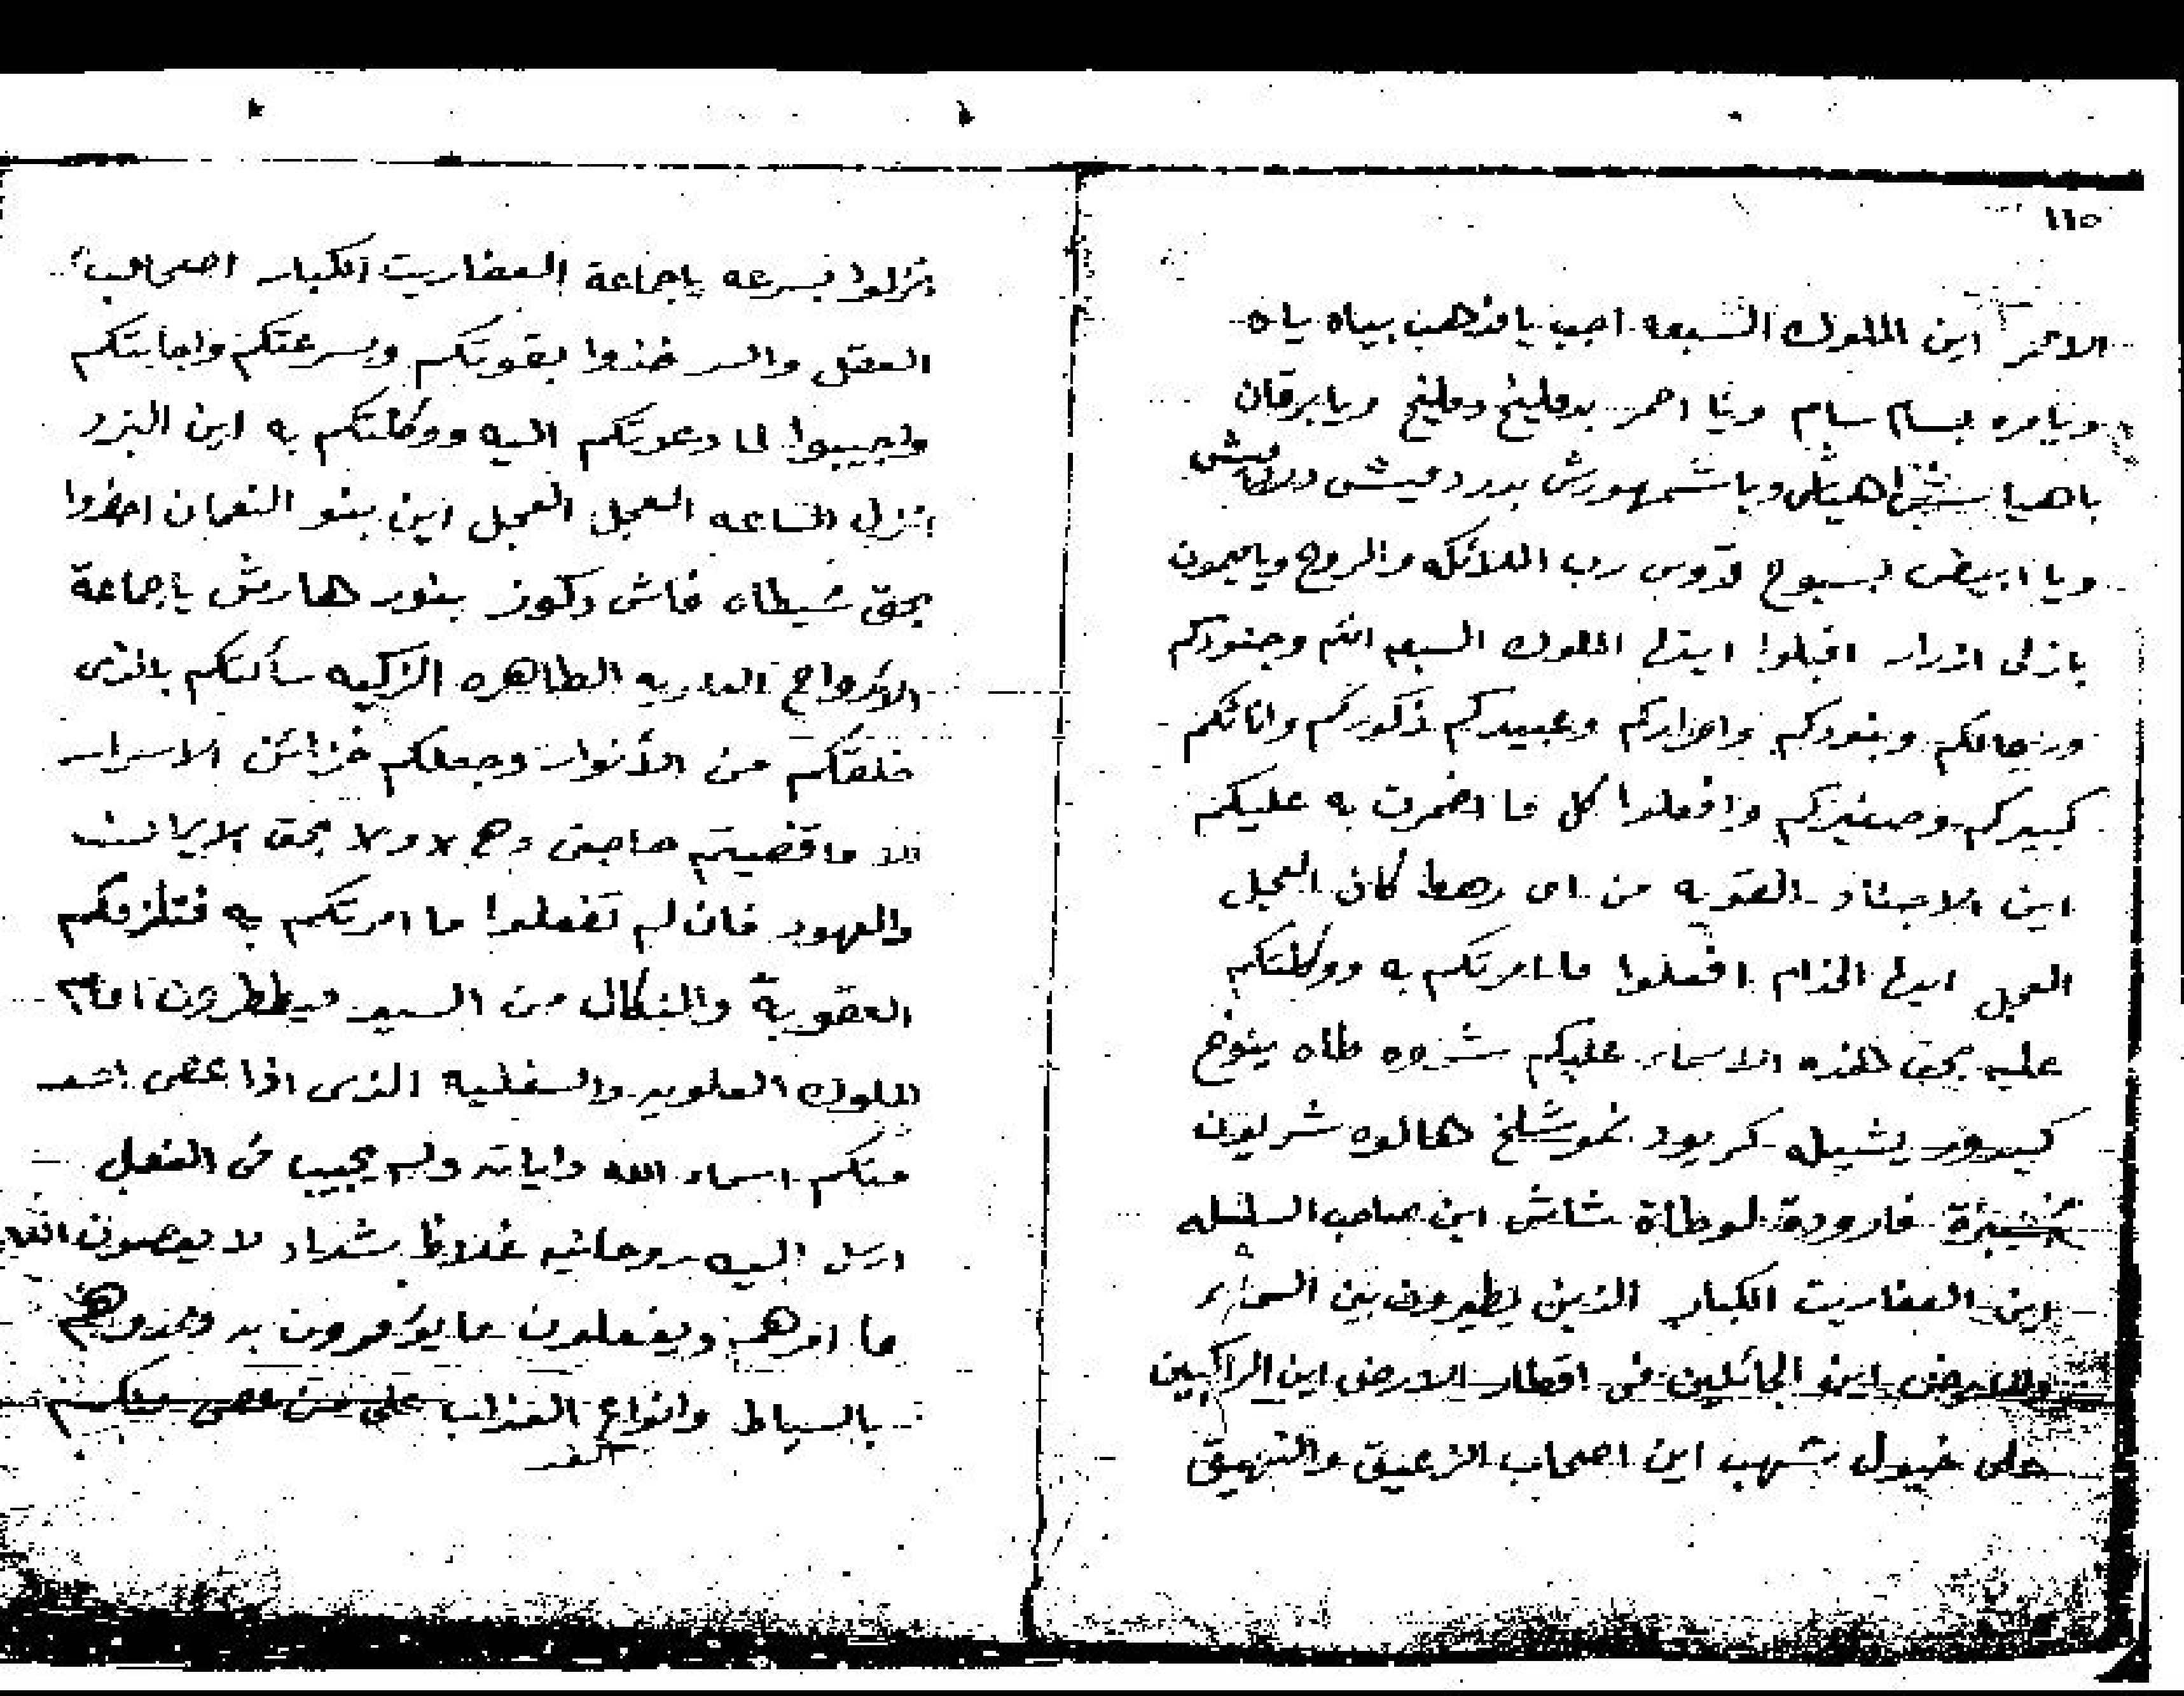 ١١٥
الاحمر اين الملوك السبعه اجب يا مذهب بياه ياه
ويا مره بسام سام ويا احمر بدمليخ دمليخ ويا برقان
باهيا شراهيا ويا شمهورش بدردميش دردميش
ويا ابيض بسبوح قدوس رب الملائكه والروح ويا ميمون
بازلى ازرار اقبلوا ايها الملوك السبعه انتم وجنودكم
ورجالكم وبنودكم واحراركم وعبيدكم ذكوركم واناثكم
كبيركم وصغيركم وافعلوا كل ما اضمرت به عليكم
اين الاجناد القويه من اى رهط كان العجل
العجل ايها الخدام افعلوا ما امرتكم به ووكلتكم
عليه بحق هذه الاسماء عليكم طاه ينوخ
يشيله كريود نموشلخ هالوه شرليون
فارودة لوطاة شاش اين صاحب السلسله
اين العفاريت الكبار الذين يطيرون بين السماء
والارض اين الجائلين فى اقطار الارض اين الراكبين
على خيول شهب اين اصحاب الزعيق والنهيق
نزلوا بسرعه ياجماعة العفاريت الكبار اصحاب
العقل والسر خذوا بقوتكم وبسرعتكم واجابتكم
واجيبوا لما دعوتكم اليه ووكلتكم به اين
انزل الساعه العجل العجل اين بنو النعمان احضروا
بحق شيطاه فاش وكوز بنور هارش ياجماعة
الارواح الطاهره الزكيه سألتكم بالذى
خلقكم من الأنوار وجعلكم خزائن الاسرار
ما قضيتم حاجتى بحق
والعهود فان لم تفعلوا ما امرتكم به فتلزمكم
العقوبة والنكال من السيد ميططرون
الملوك العلويه والسفليه الذى اذا عصى احد
منكم اسماء الله واياته ولم يجيب فى الفعل
ارسل اليه روحانيه غلاظ شداد لا يعصون الله
ما امرهم ويفعلون ما يؤمرون به
بالسياط وانواع العذاب على من عصى منكم